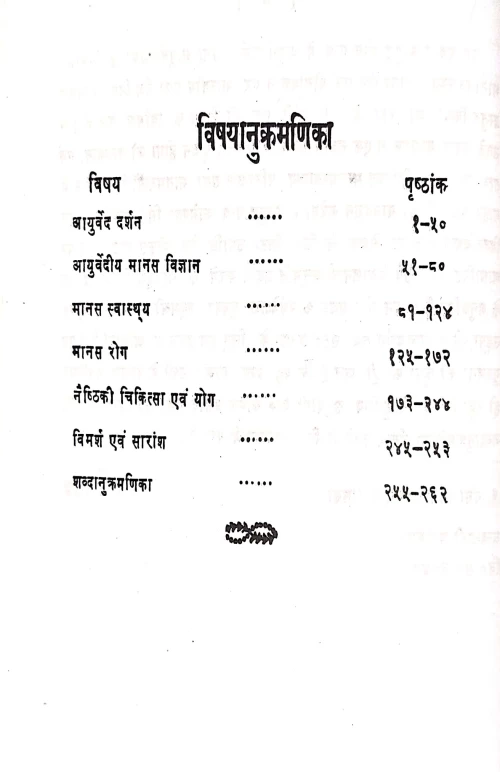 विषयानुक्रमणिका
विषय पृष्ठांक
आयुर्वेद दर्शन ...... १-५०
आयुर्वेदीय मानस विज्ञान ...... ५१-८०
मानस स्वास्थ्य ...... ८१-१२४
मानस रोग ...... १२५-१७२
नैष्ठिकी चिकित्सा एवं योग ...... १७३-२४४
विमर्श एवं सारांश ...... २४५-२५३
शब्दानुक्रमणिका ...... २५५-२६२